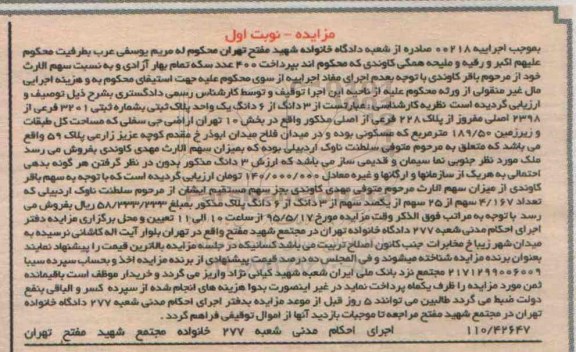 مزایده - نوبت اول
بموجب اجراییه ۰۰۲۱۸ صادره از شعبه دادگاه خانواده شهید مفتح تهران محکوم له مریم یوسفی عرب بطرفیت محکوم
علیهم اکبر و رقیه و ملیحه همگی کاوندی که محکوم اند بپرداخت ۴۰۰ عدد سکه تمام بهار آزادی و به نسبت سهم الارث
خود از مرحوم باقر کاوندی با توجه بعدم اجرای مفاد اجراییه از سوی محکوم علیه جهت استیفای محکوم به و هزینه اجرایی
مال غیر منقولی از ورثه محکوم علیه از ناحیه این اجرا توقیف و توسط کارشناس رسمی دادگستری بشرح ذیل توصیف و
ارزیابی گردیده است نظریه کارشناسی : عبارتست از ۳ دانگ از ۶ دانگ یک واحد پلاک ثبتی بشماره ثبتی ۳۲۰۱ فرعی از
۲۳۹۸ اصلی مفروز از پلاک ۲۲۸ فرعی از اصلی مذکور واقع در بخش ۱۰ تهران اراضی جی سفلی که مساحت کل طبقات
و زیرزمین ۱۸۹/۵۰ مترمربع که مسکونی بوده و در میدان فلاح میدان ابوذر خ مقدم کوچه عزیز زارعی پلاک ۵۹ واقع
می باشد که متعلق به مرحوم متوفی سلطنت ناوک اردبیلی بوده که بمیزان سهم الارث مهدی کاوندی بفروش می رسد
ملک مورد نظر جنوبی نما سیمان و قدیمی ساز می باشد که ارزش ۳ دانگ مذکور بدون در نظر گرفتن هر گونه بدهی
احتمالی به هریک از سازمانها و ارگانها و غیره معادل ۱۴۰/۰۰۰/۰۰۰ تومان ارزیابی گردیده است که با توجه به سهم باقر
کاوندی از میزان سهم الارث مرحوم متوفی مهدی کاوندی بجز سهم مستقیم ایشان از مرحوم سلطنت ناوک اردبیلی که
تعداد ۴/۱۶۷ سهم از ۲۵ سهم از یکصد سهم از ۳ دانگ از ۶ دانگ پلاک مذکور بمبلغ ۵۸/۳۳۳/۳۳۳ ریال بفروش می
رسد با توجه به مراتب فوق الذکر وقت مزایده مورخ ۹۵/۵/۱۷ از ساعت ۱۰ الی ۱۱ تعیین و محل برگزاری مزایده دفتر
اجرای احکام مدنی شعبه ۲۷۷ دادگاه خانواده تهران در مجتمع شهید مفتح واقع در تهران بلوار آیت اله کاشانی نرسیده به
میدان شهر زیبا خ مخابرات جنب کانون اصلاح تربیت می باشد کسانیکه در جلسه مزایده بالاترین قیمت را پیشنهاد نمایند
بعنوان برنده مزایده شناخته میشوند و فی المجلس ده درصد قیمت پیشنهادی از برنده مزایده اخذ و بحساب سپرده سیبا
۲۱۷۱۲۹۹۰۰۶۰۰۹ مجتمع نزد بانک ملی ایران شعبه شهید کیانی نژاد واریز می گردد و خریدار موظف است باقیمانده
ثمن مورد مزایده را ظرف یکماه پرداخت نماید در غیر اینصورت بدوا هزینه های انجام شده از سپرده کسر و الباقی بنفع
دولت ضبط می گردد طالبین می توانند ۵ روز قبل از موعد مزایده بدفتر اجرای احکام مدنی شعبه ۲۷۷ دادگاه خانواده
تهران در مجتمع شهید مفتح مراجعه تا موجبات بازدید آنها از اموال توقیفی فراهم گردد .
۱۱۰/۴۲۶۴۷ اجرای احکام مدنی شعبه ۲۷۷ خانواده مجتمع شهید مفتح تهران